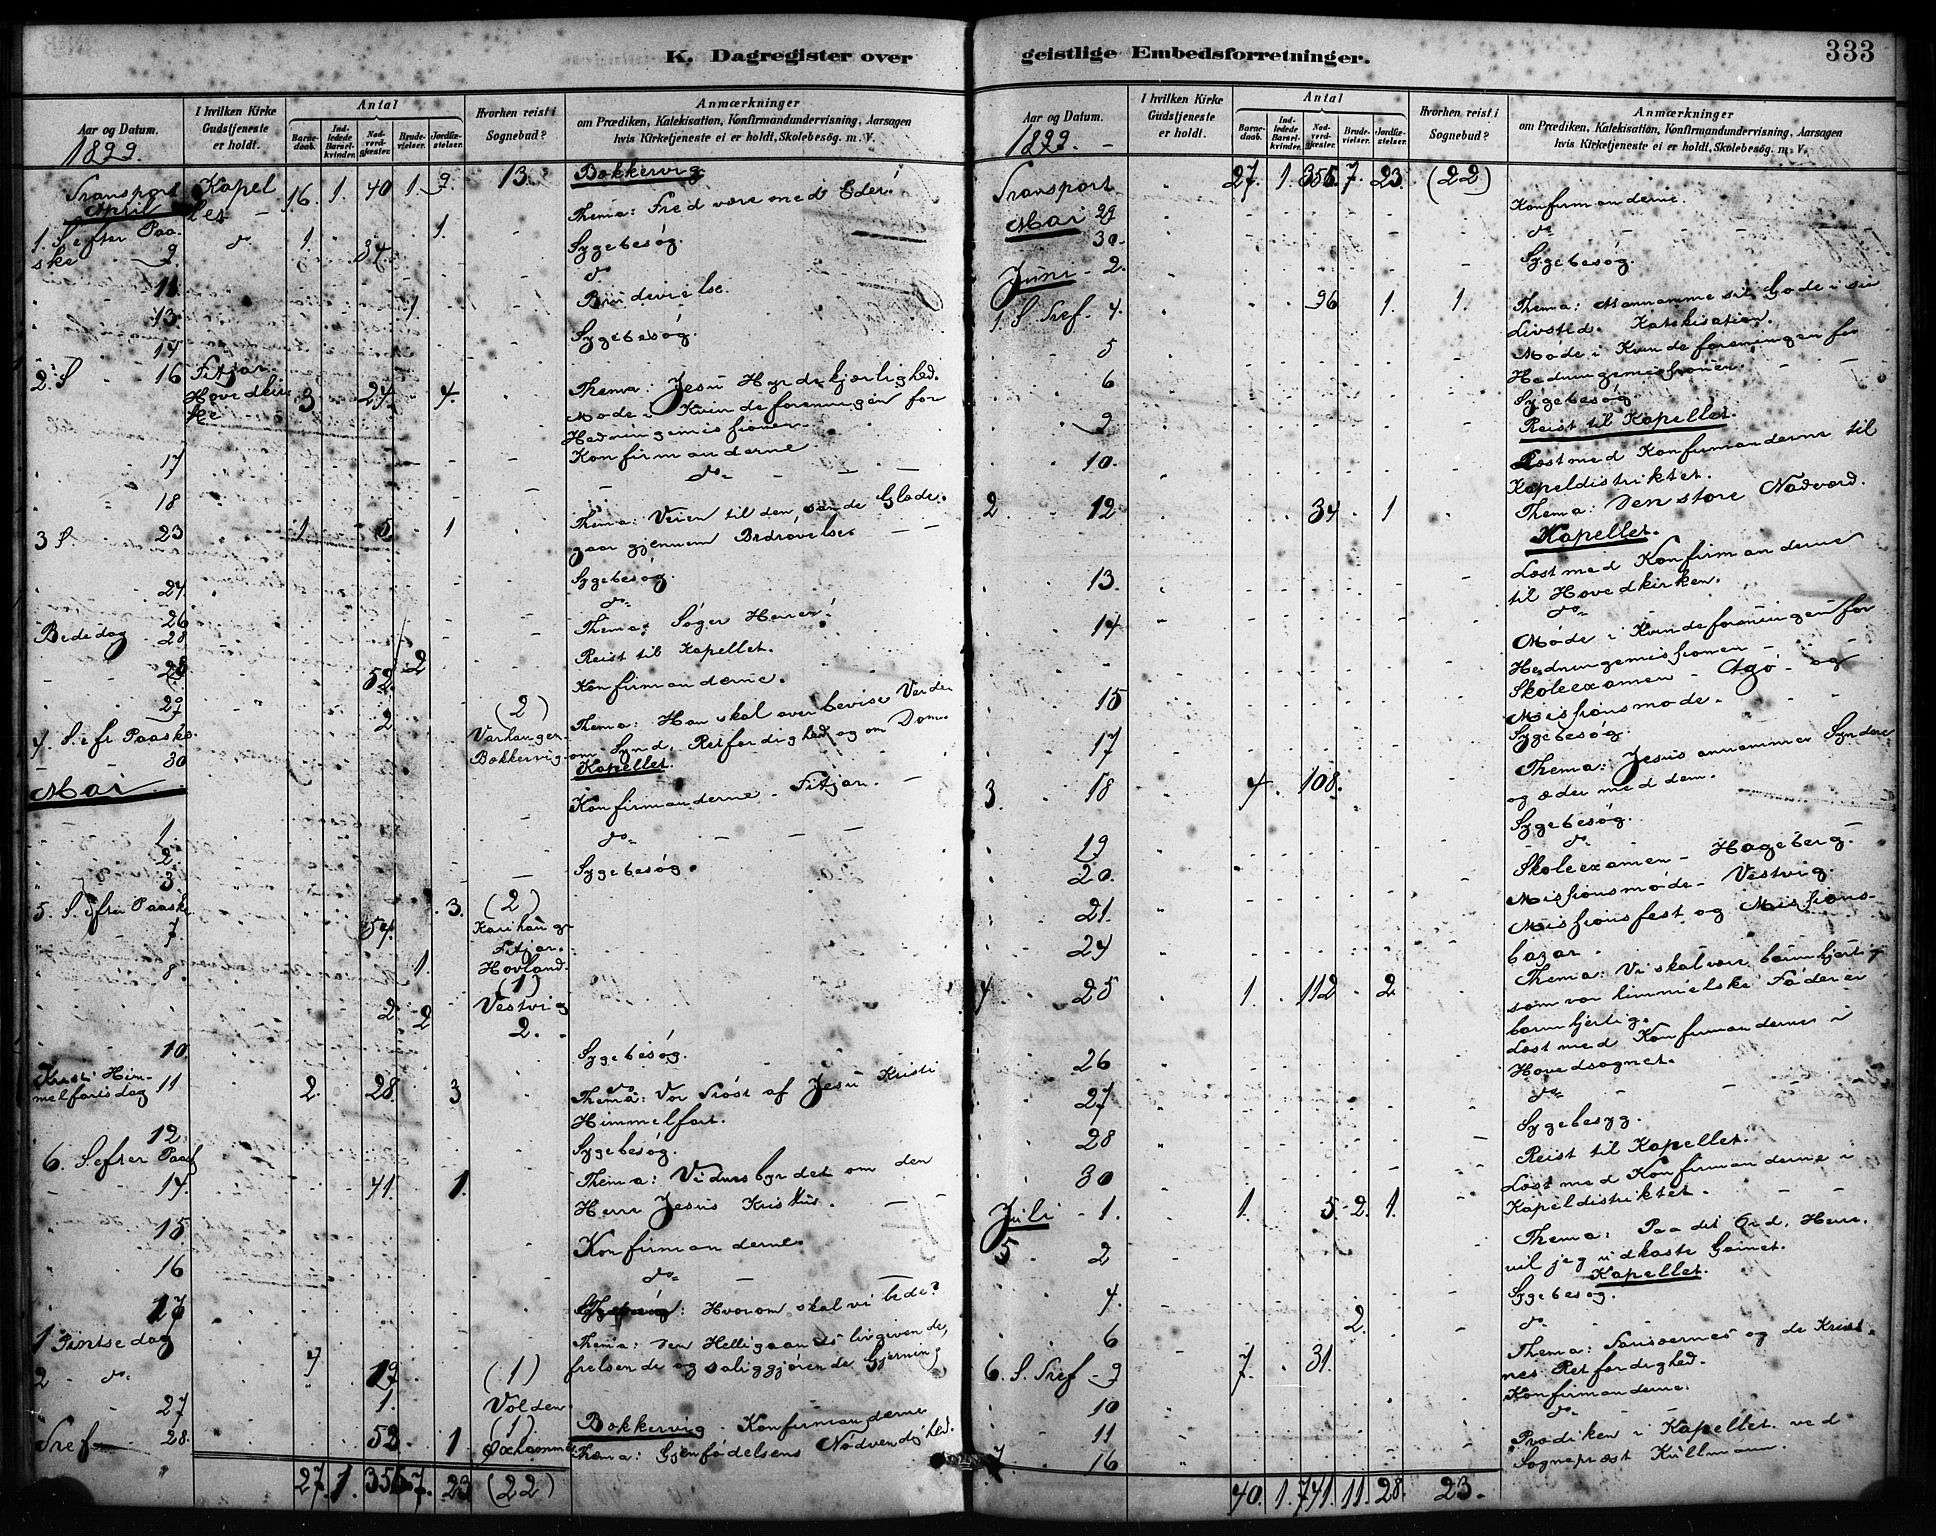 K. Dagregister over
Aar og Datum.
1899.
I hvilken Kirke Gudstjeneste er holdt.
Antal
Barnedaab.
Indledede Barselkvinder.
Nadverdgjester.
Brudevielser.
Jordfæstelser.
Hvorhen reist i Sognebud?
Anmærkninger
om Prædiken, Katekisation, Konfirmandundervisning, Aarsagen
hvis Kirketjeneste ei er holdt, Skolebesøg. m. V.
Transport Kapel 16. 1. 40 1. 9. 13. Bekkervig
April let Thema: Fred være med Eder!
1. S. efter Paaske 9 do 1. 34. 1. Sygebesøg.
11 do
13. 1 Brudevielse.
14 Sygebesøg.
2. S 16 Fitjar Hovedkirke 3 24. 4. Thema: Jesu Hyrdekjærlighed.
Møde i Kvindeforeningen for
Hedningemissionen.
17 Konfirmanderne
18 do
3 S. 23 1 5. 1 Thema: Veien til den sande Glæde
gaar gjennem Bedrøvelse
24. Sygebesøg.
26 do
Bededag 28 Thema: Søger Herren!
28 52. 2 Reist til Kapellet.
29 2 (2) Konfirmanderne.
4. S. eft Paaske 30 Bekkervig Thema: Han skal overbevise Verden
om Synd, Retfærdighed og om Dom.
Kapellet.
Mai
1. Konfirmanderne - Fitjar.
2. do
3. Sygebesøg.
5. S. efter Paaske 7. 54. 3. (2)
Fitjar.
8. 1. Hovland.
(1)
2. 2 Vestvig
2.
10. Sygebesøg.
do
Kristi Himmelfartsdag 11 2. 28. 3 Thema: Vor Trøst af Jesu Kristi
Himmelfart.
12. Sygebesøg.
6. S. efter Paask 14. 41. 1. Thema: Vidnesbyrdet om den
Herre Jesus Kristus.
15. Konfirmanderne
16 do
Thema: Hvorom skal vi bede?
1 Pintsedag Thema: Den Helligaands livgivende,
2 do 7 19 (1) frelsende og saliggjørende Gjerning
27 1. Volden Bekkervig. Konfirmanderne
Tref 28. 52. 1 (1) Thema: Gjenfødelsens Nødvendighed.
27. 1. 356 7. 23 (22)
geistlige Embedsforretninger.
333
Aar og Datum.
1899.
I hvilken Kirke Gudstjeneste er holdt.
Antal
Barnedaab.
Indledede Barselkvinder.
Nadverdgjester.
Brudevielser.
Jordfæstelser.
Hvorhen reist i Sognebud?
Anmærkninger
om Prædiken, Katekisation, Konfirmandundervisning, Aarsagen
hvis Kirketjeneste ei er holdt, Skolebesøg. m. V.
Transport 27. 1. 356. 7. 23. (22)
Mai 29 Konfirmanderne.
30. do
Juni 2. Sygebesøg.
1 S Tref. 4. 96 1. 1. Thema:
Livstid. Katekisation.
5 Møde i Kvindeforeningen for
Hedningemissionen.
6 Sygebesøg.
9 Reist til Kapellet.
10. Læst med Konfirmanderne til
Kapeldistriktet.
2 12 34 1 Thema: Den store Nadverd.
Kapellet.
13. Læst med Konfirmanderne
til Hovedkirken.
14 do
Møde i Kvindeforeningen for
Hedningemissionen
15 Skoleexamen - Agø og
Missionsmøde.
17 Sygebesøg.
3. 18 4. 108. Thema: Jesus annammer Syndere
og æder med dem.
19 Sygebesøg.
20. do
21. Skoleexamen - Hageberg.
Missionsmøde - Vestvig.
24 Missionsfest og Missionsbazar.
4 25 1 112 2. Thema: Vi skal være barmhjertig
som vor himmelske Fader er
barmhjertig.
26 Læst med Konfirmanderne i
Hovedsognet.
27 do
28 Sygebesyg.
30 Reist til Kapellet.
Juli 1. 1. 5. 2. 1. Læst med Konfirmanderne i
Kapeldistriktet.
5 2 Thema: Paa dit Ord, Herre,
vil jeg udkaste Garnet.
Kapellet.
4. Sygebesøg.
6 2. do
6. S. Tref 9 7. 31. Thema: Farisæernes og de Kristnes
Retfærdighed.
10 Konfirmanderne.
11 do
7. 16 Prædiken i Kapellet ved
Sognepræst Kullmann.
40. 1. 741. 11. 28. 23.